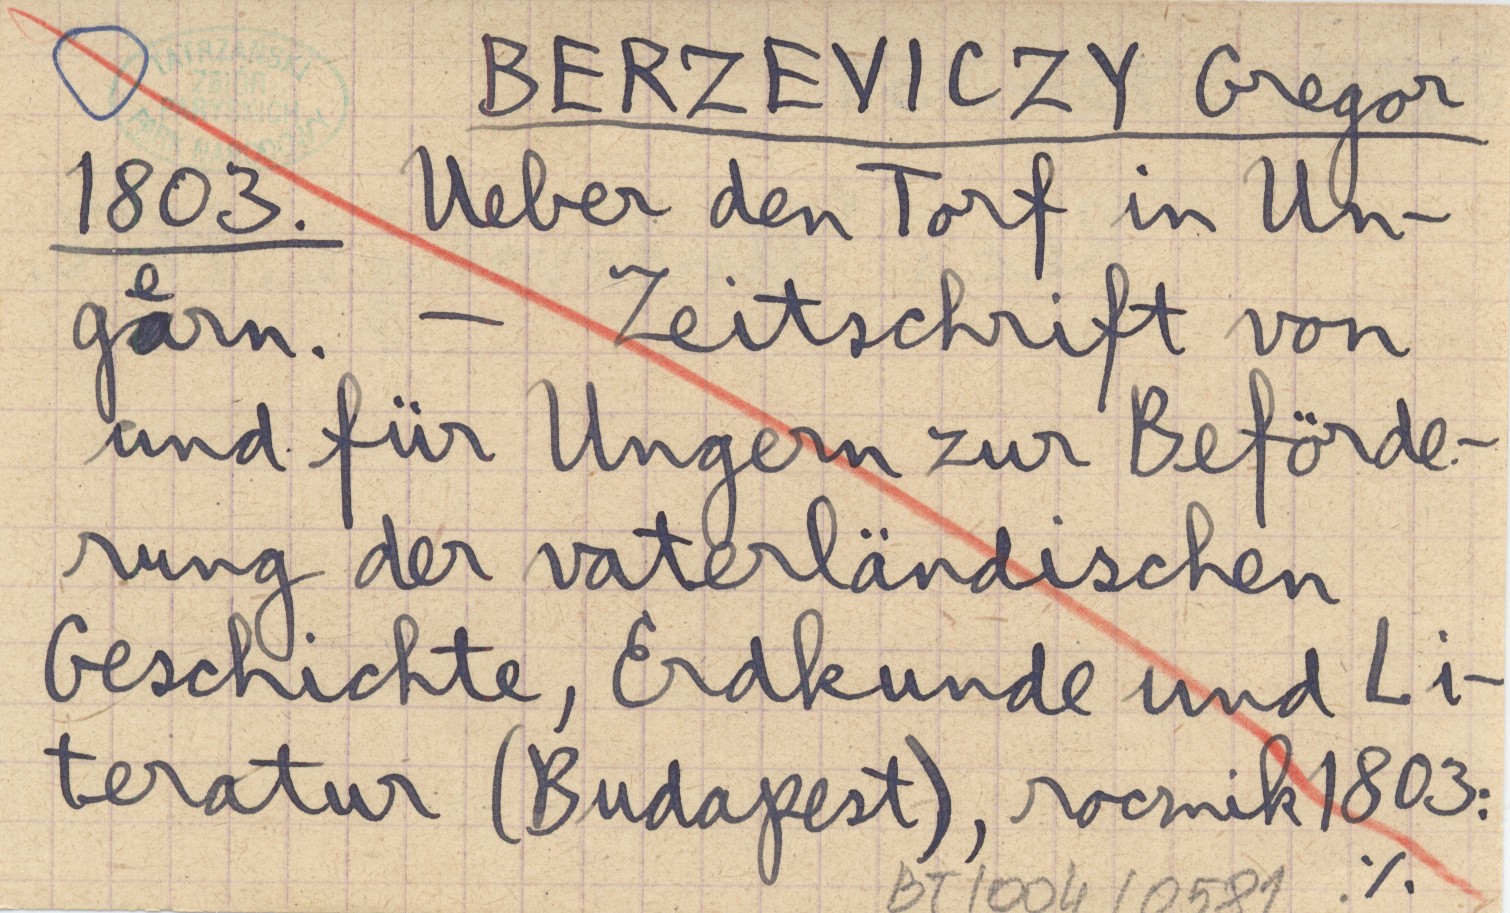 TATRZAŃSKI
PARK NARODOWY
BERZEVICZY Gregor
1803. Ueber den Torf in Un-
gern. — Zeitschrift von
und für Ungern zur Beförde-
rung der vaterländischen
Geschichte, Erdkunde und Li-
teratur (Budapest), rocznik 1803:
./.
BT/004/0581